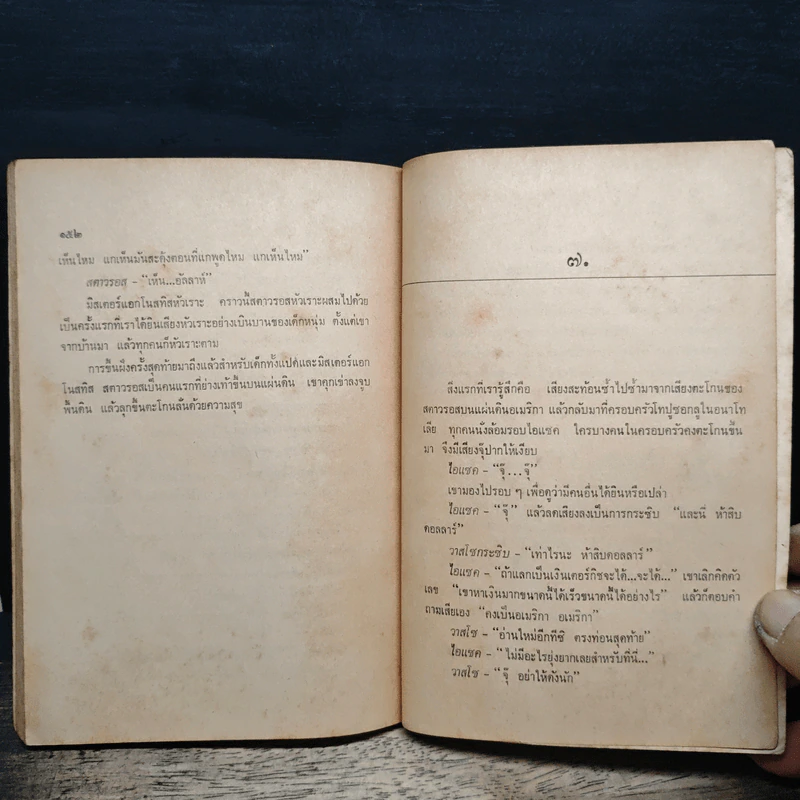 ๑๕๒
เห็นไหม แกเห็นมันสะดุ้งตอนที่แกพูดไหม แกเห็นไหม”
สตาวรอส – “เห็น...อัลลาห์”
มิสเตอร์แอกโนสทิสหัวเราะ คราวนี้สตาวรอสหัวเราะผสมไปด้วย
เป็นครั้งแรกที่เราได้ยินเสียงหัวเราะอย่างเบิกบานของเด็กหนุ่ม ตั้งแต่เขา
จากบ้านมา แล้วทุกคนก็หัวเราะตาม
การขึ้นฝั่งครั้งสุดท้ายมาถึงแล้วสำหรับเด็กทั้งแปดและมิสเตอร์แอก
โนสทิส สตาวรอสเป็นคนแรกที่ย่างเท้าขึ้นบนแผ่นดิน เขาคุกเข่าลงจูบ
พื้นดิน แล้วลุกขึ้นตะโกนลั่นด้วยความสุข
๗.
สิ่งแรกที่เรารู้สึกคือ เสียงสะท้อนซ้ำไปซ้ำมาจากเสียงตะโกนของ
สตาวรอสบนแผ่นดินอเมริกา แล้วกลับมาที่ครอบครัวโทปูซอกลูในอนาโท
เลีย ทุกคนนั่งล้อมรอบไอแซค ใครบางคนในครอบครัวคงตะโกนขึ้น
มา จึงมีเสียงจุ๊ปากให้เงียบ
ไอแซค – “จุ๊...จุ๊”
เขามองไปรอบ ๆ เพื่อดูว่ามีคนอื่นได้ยินหรือเปล่า
ไอแซค – “จุ๊” แล้วลดเสียงลงเป็นการกระซิบ “และนี่ ห้าสิบ
ดอลลาร์”
วาสโซกระซิบ – “เท่าไรนะ ห้าสิบดอลลาร์”
ไอแซค – “ถ้าแลกเป็นเงินเตอร์กิชจะได้...จะได้...” เขาเลิกคิดตัว
เลข “เขาหาเงินมากขนาดนี้ได้เร็วขนาดนี้ได้อย่างไร” แล้วก็ตอบคำ
ถามเสียเอง “คงเป็นอเมริกา อเมริกา”
วาสโซ – “อ่านใหม่อีกทีซิ ตรงท่อนสุดท้าย”
ไอแซค – “ไม่มีอะไรยุ่งยากเลยสำหรับที่นี่...”
วาสโซ – “จุ๊ อย่าให้ดังนัก”